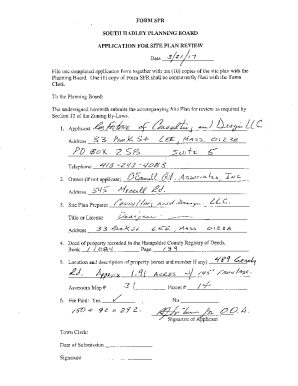 FORM SPR
SOUTH HADLEY PLANNING BOARD
APPLICATION FOR SITE PLAN REVIEW
Date 3/21/17
File one completed application form together with ten (10) copies of the site plan with the
Planning Board. One (1) copy of Form SPR shall be concurrently filed with the Town
Clerk.
To the Planning Board:
The undersigned herewith submits the accompanying Site Plan for review as required by
Section 12 of the Zoning By-Laws.
1. Applicant of Consulting and Design LLC
Address 33 Park St LEE, MASS 01238
PO BOX 258 SUITE 5
Telephone 413-242-4083
2. Owner (if not applicant) O'Connell Associates, Inc.
Address 545 Merrill Rd.
3. Site Plan Preparer Consulting and Design, LLC.
Title or License Designer
Address 33 Park St LEE, MASS 01238
4. Deed of property recorded in the Hampshire County Registry of Deeds,
Book 11084 Page 199
5. Location and description of property (street and number if any) 489 Granby
Rd. Approx 1.91 acres 145' frontage.
Assessors Map # 31 Parcel # 14
6. Fee Paid: Yes ✓ No
150 + 92 = 242. for O.D.A.
Signature of Applicant
Town Clerk:
Date of Submission
Signature